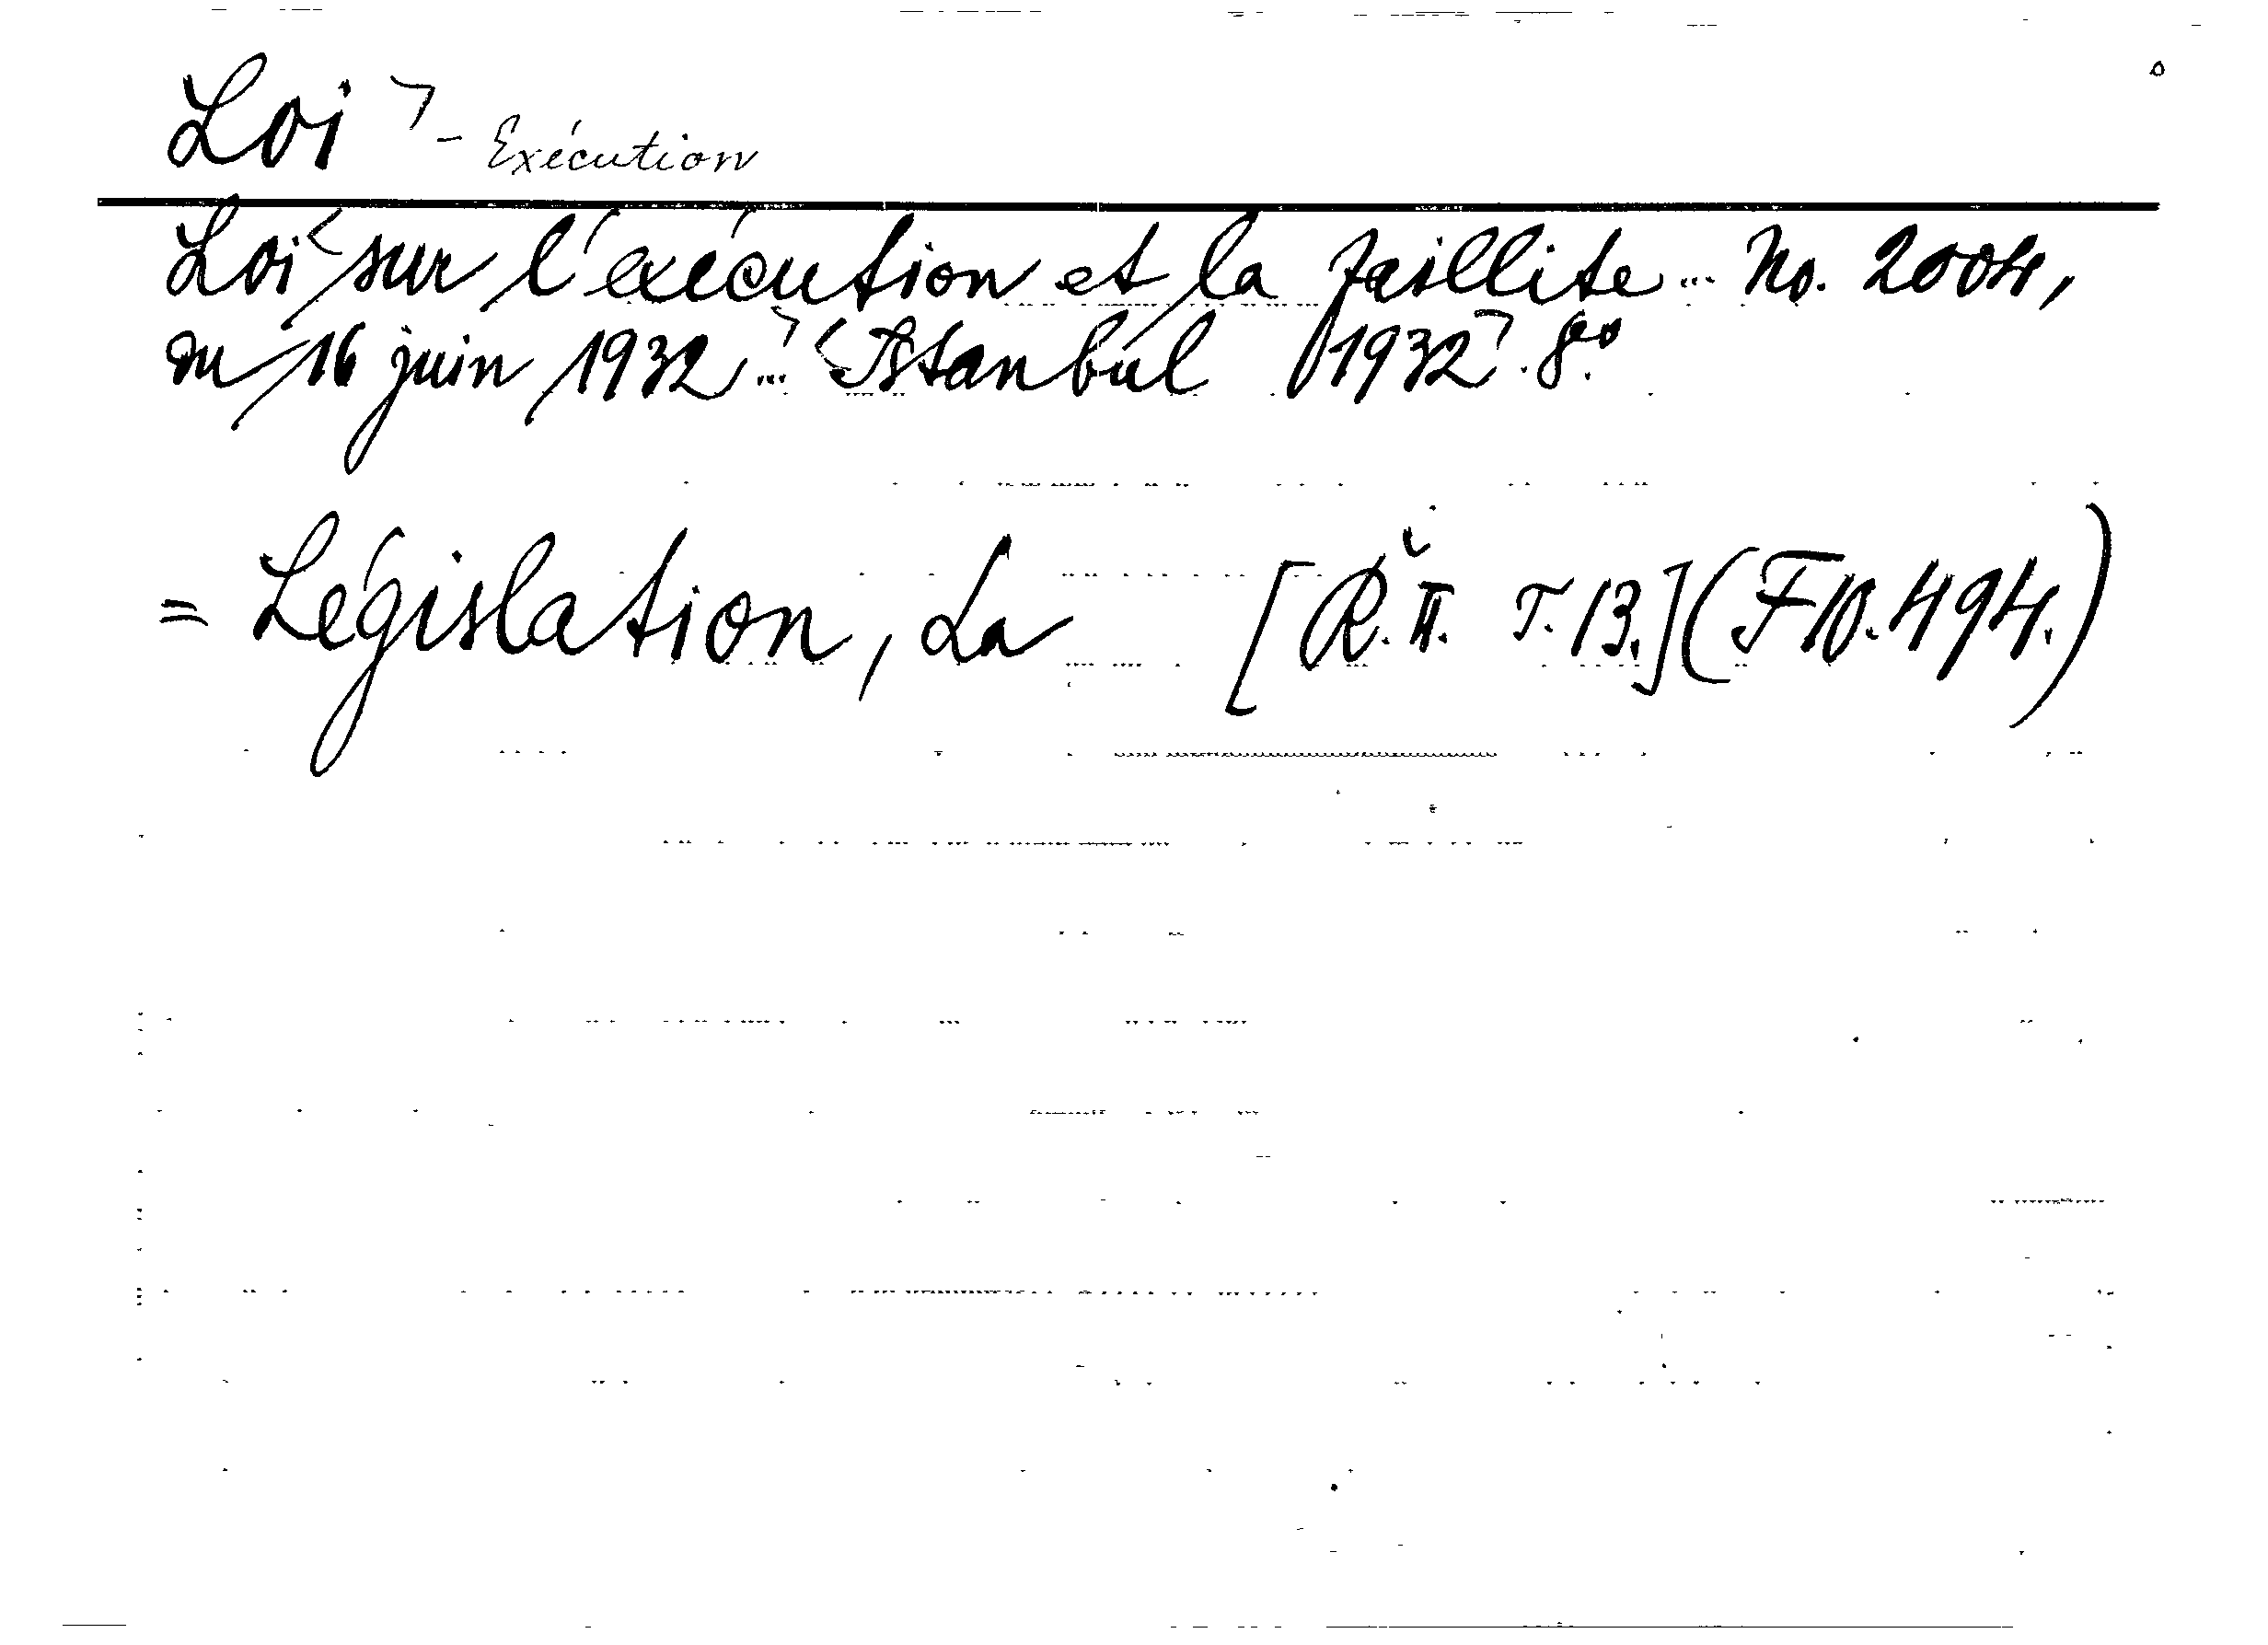 Loi ⌝ - Exécution
Loi ⌜sur l'exécution et la faillite... No. 2004,
du 16 juin 1932...⌝ ⌜Istanbul 1932⌝. 8°.
= Législation, La [R. II. T. 13.] (F 10. 494.)